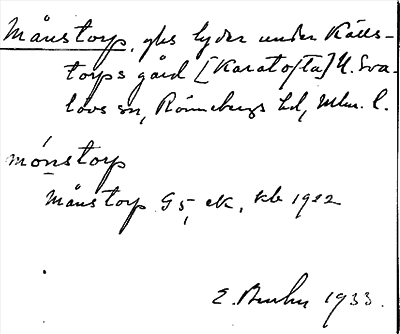 Månstorp, ghs lyder under Källs-
torps gård [Karatofta] N. Sva-
lövs sn, Rönnebergs hd, Mlm. l.
mónstorp
Månstorp G 5, ek, kb 1922
E. Bruhn 1933.